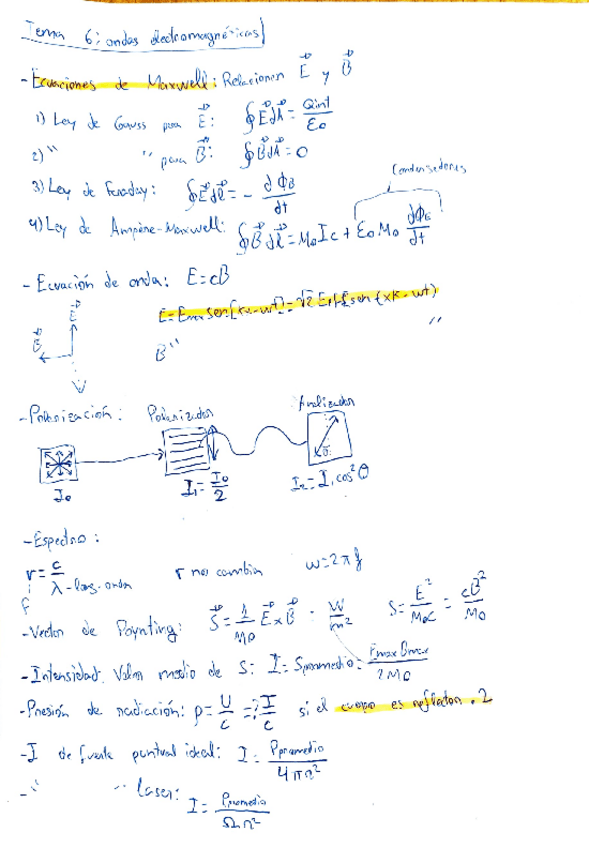 Tema 6: ondas electromagnéticas
- Ecuaciones de Maxwell: Relacionan E⃗ y B⃗
1) Ley de Gauss para E⃗: ∮E⃗dA⃗ = Qint/ε0
2) " " para B⃗: ∮B⃗dA⃗ = 0
Condensadores
3) Ley de Faraday: ∮E⃗dl⃗ = - dΦB/dt
4) Ley de Ampère-Maxwell: ∮B⃗dl⃗ = M0 Ic + ε0 M0 dΦE/dt
- Ecuación de onda: E = cB
E = Emax sen[kx-wt] = √2 Eef sen(xk-wt)
B " "
E⃗
B⃗
- Polarización: Polarizador analizador
I0 I1 = I0/2 I2 = I1 cos²θ
- Espectro:
r = c/λ - long. onda r no cambia w = 2πf
f
- Vector de Poynting: S⃗ = 1/M0 E⃗xB⃗ = W/m² S = E²/M0c = cB²/M0
- Intensidad. Valor medio de S: I = Spromedio = Emax Bmax/2M0
- Presión de radiación: p = U/c =? I/c si el cuerpo es reflector · 2
- I de fuente puntual ideal: I = Ppromedio/4πr²
- " " laser: I = Ppromedio/Ωr²